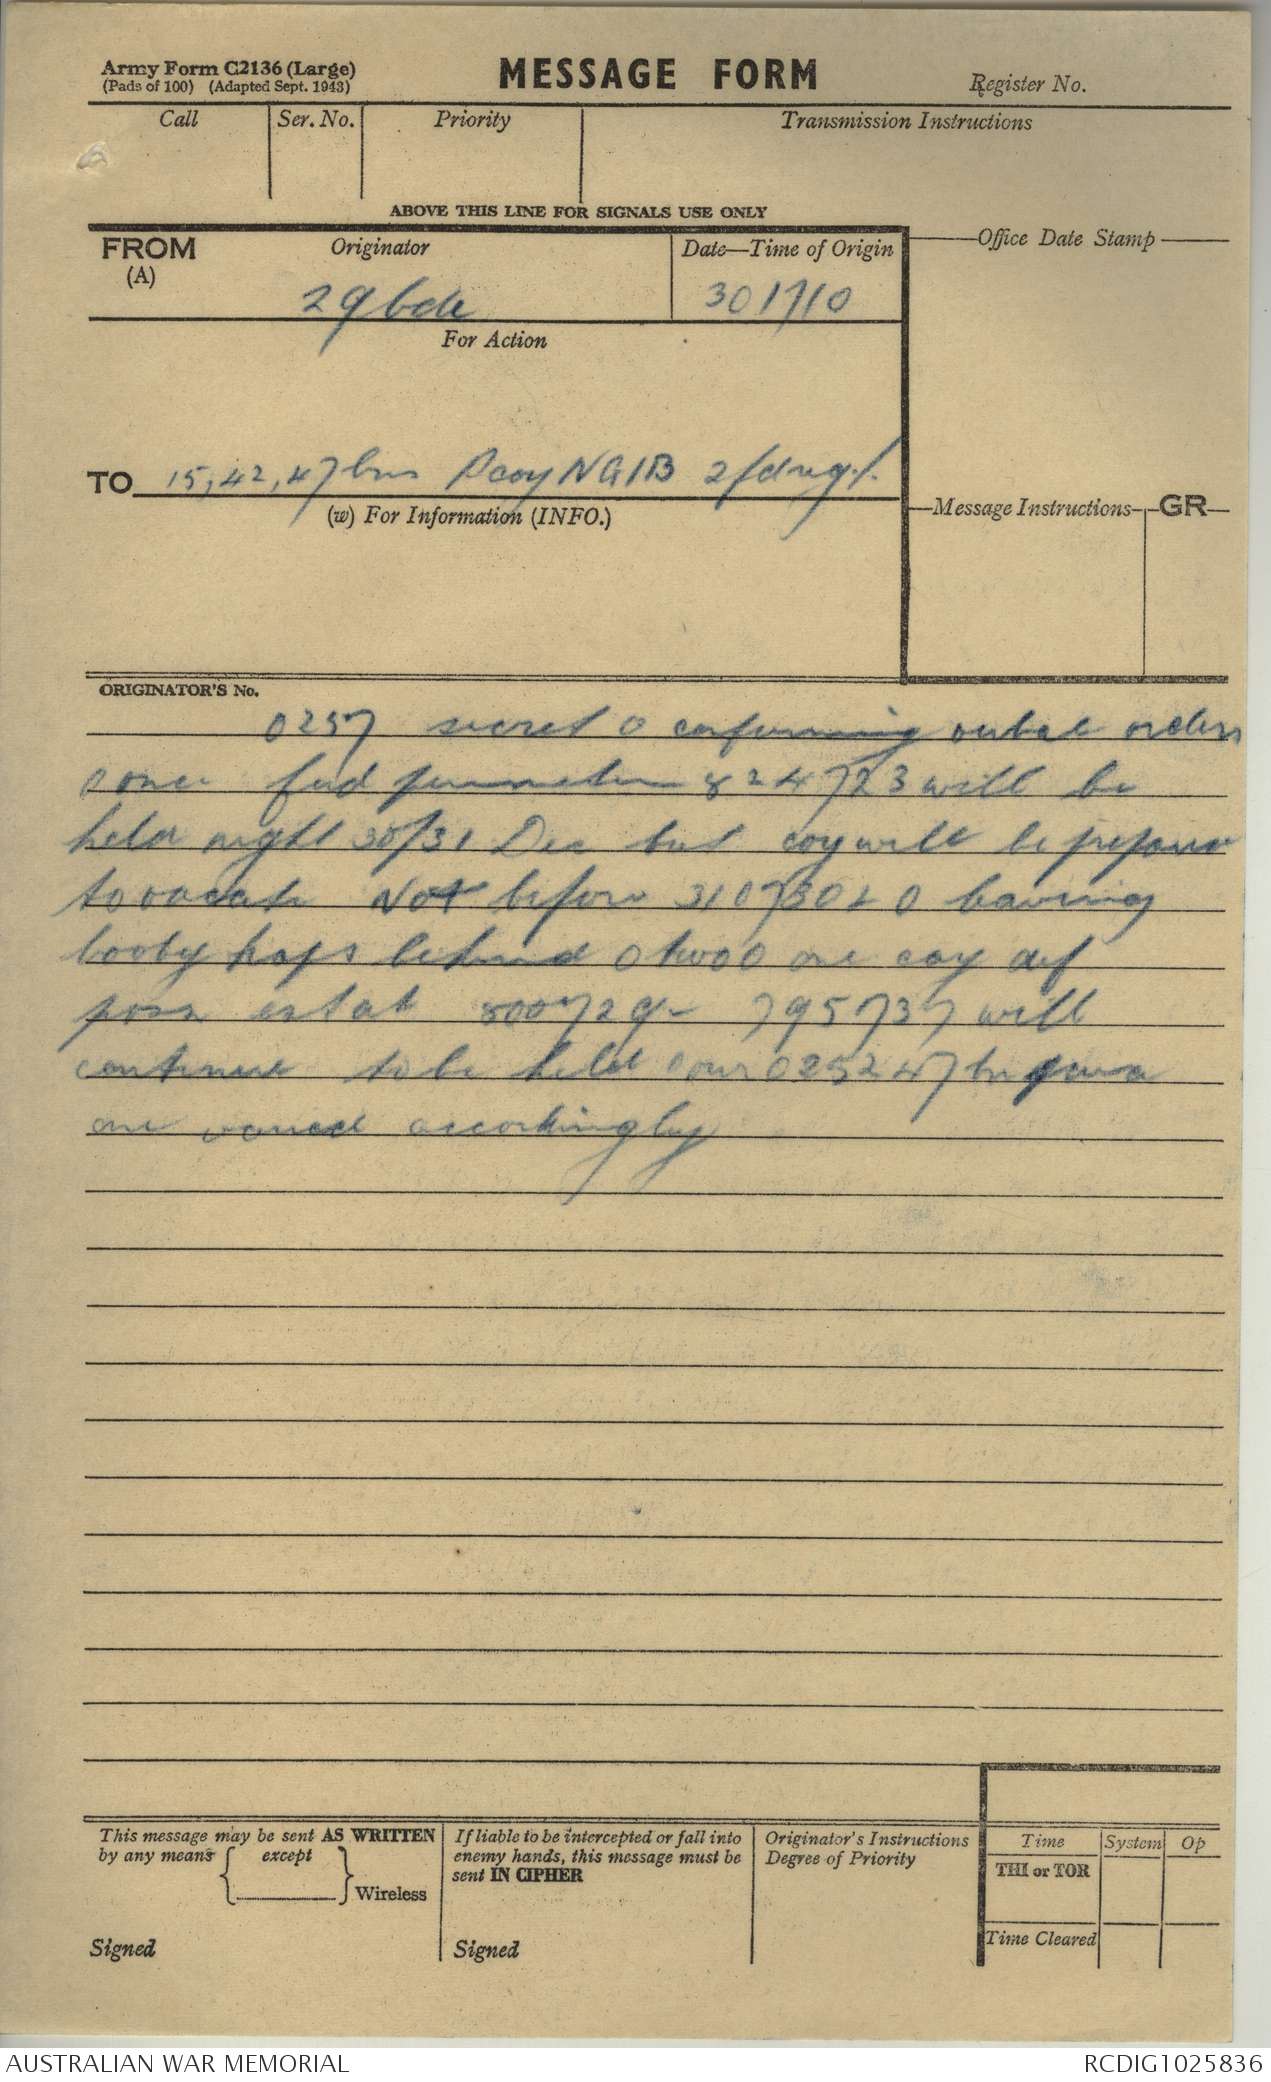 Army Form C2136 (Large)
(Pads of 100) (Adapted Sept. 1943)
MESSAGE FORM
Register No.
Call
Ser. No.
Priority
Transmission Instructions
ABOVE THIS LINE FOR SIGNALS USE ONLY
FROM
(A)
Originator
29 bde
Date—Time of Origin
301710
Office Date Stamp
For Action
TO 15, 42, 47 bns Dcoy NGIB 2 fd regt.
(w) For Information (INFO.)
Message Instructions
GR
ORIGINATOR'S No.
0257 secret O confirming verbal orders
O one fwd perimeter 824723 will be
held night 30/31 Dec but coy will be prepared
to vacate Not before 310730 O leaving
booby traps behind O two O one coy def
posn est at 800729 - 795737 will
continue to be held O our 0252 47 bn
one varied accordingly
This message may be sent AS WRITTEN
by any means
except
Wireless
Signed
If liable to be intercepted or fall into
enemy hands, this message must be
sent IN CIPHER
Signed
Originator's Instructions
Degree of Priority
Time
System
Op
THI or TOR
Time Cleared
AUSTRALIAN WAR MEMORIAL
RCDIG1025836